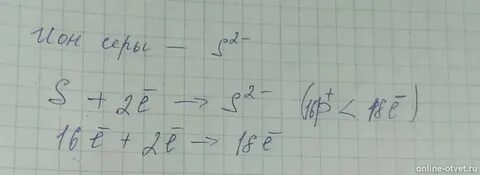 Ион серы — S²⁻
S + 2ē → S²⁻ (16p⁺ < 18ē)
16ē + 2ē → 18ē
online-otvet.ru